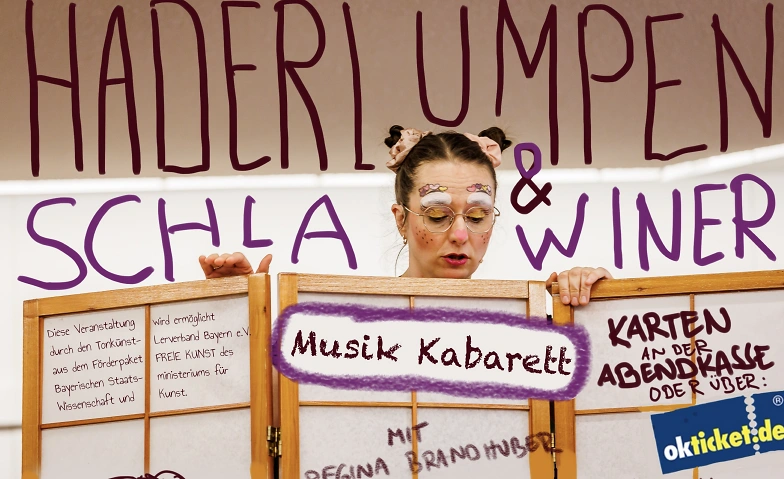 HADERLUMPEN
&
SCHLAWINER
Diese Veranstaltung wird ermöglicht
durch den Tonkünst- lerverband Bayern e.V.
aus dem Förderpaket FREIE KUNST des
Bayerischen Staats- ministeriums für
Wissenschaft und Kunst.
Musik Kabarett
MIT
REGINA BRANDHUBER
KARTEN
AN DER
ABENDKASSE
ODER ÜBER:
okticket.de
®